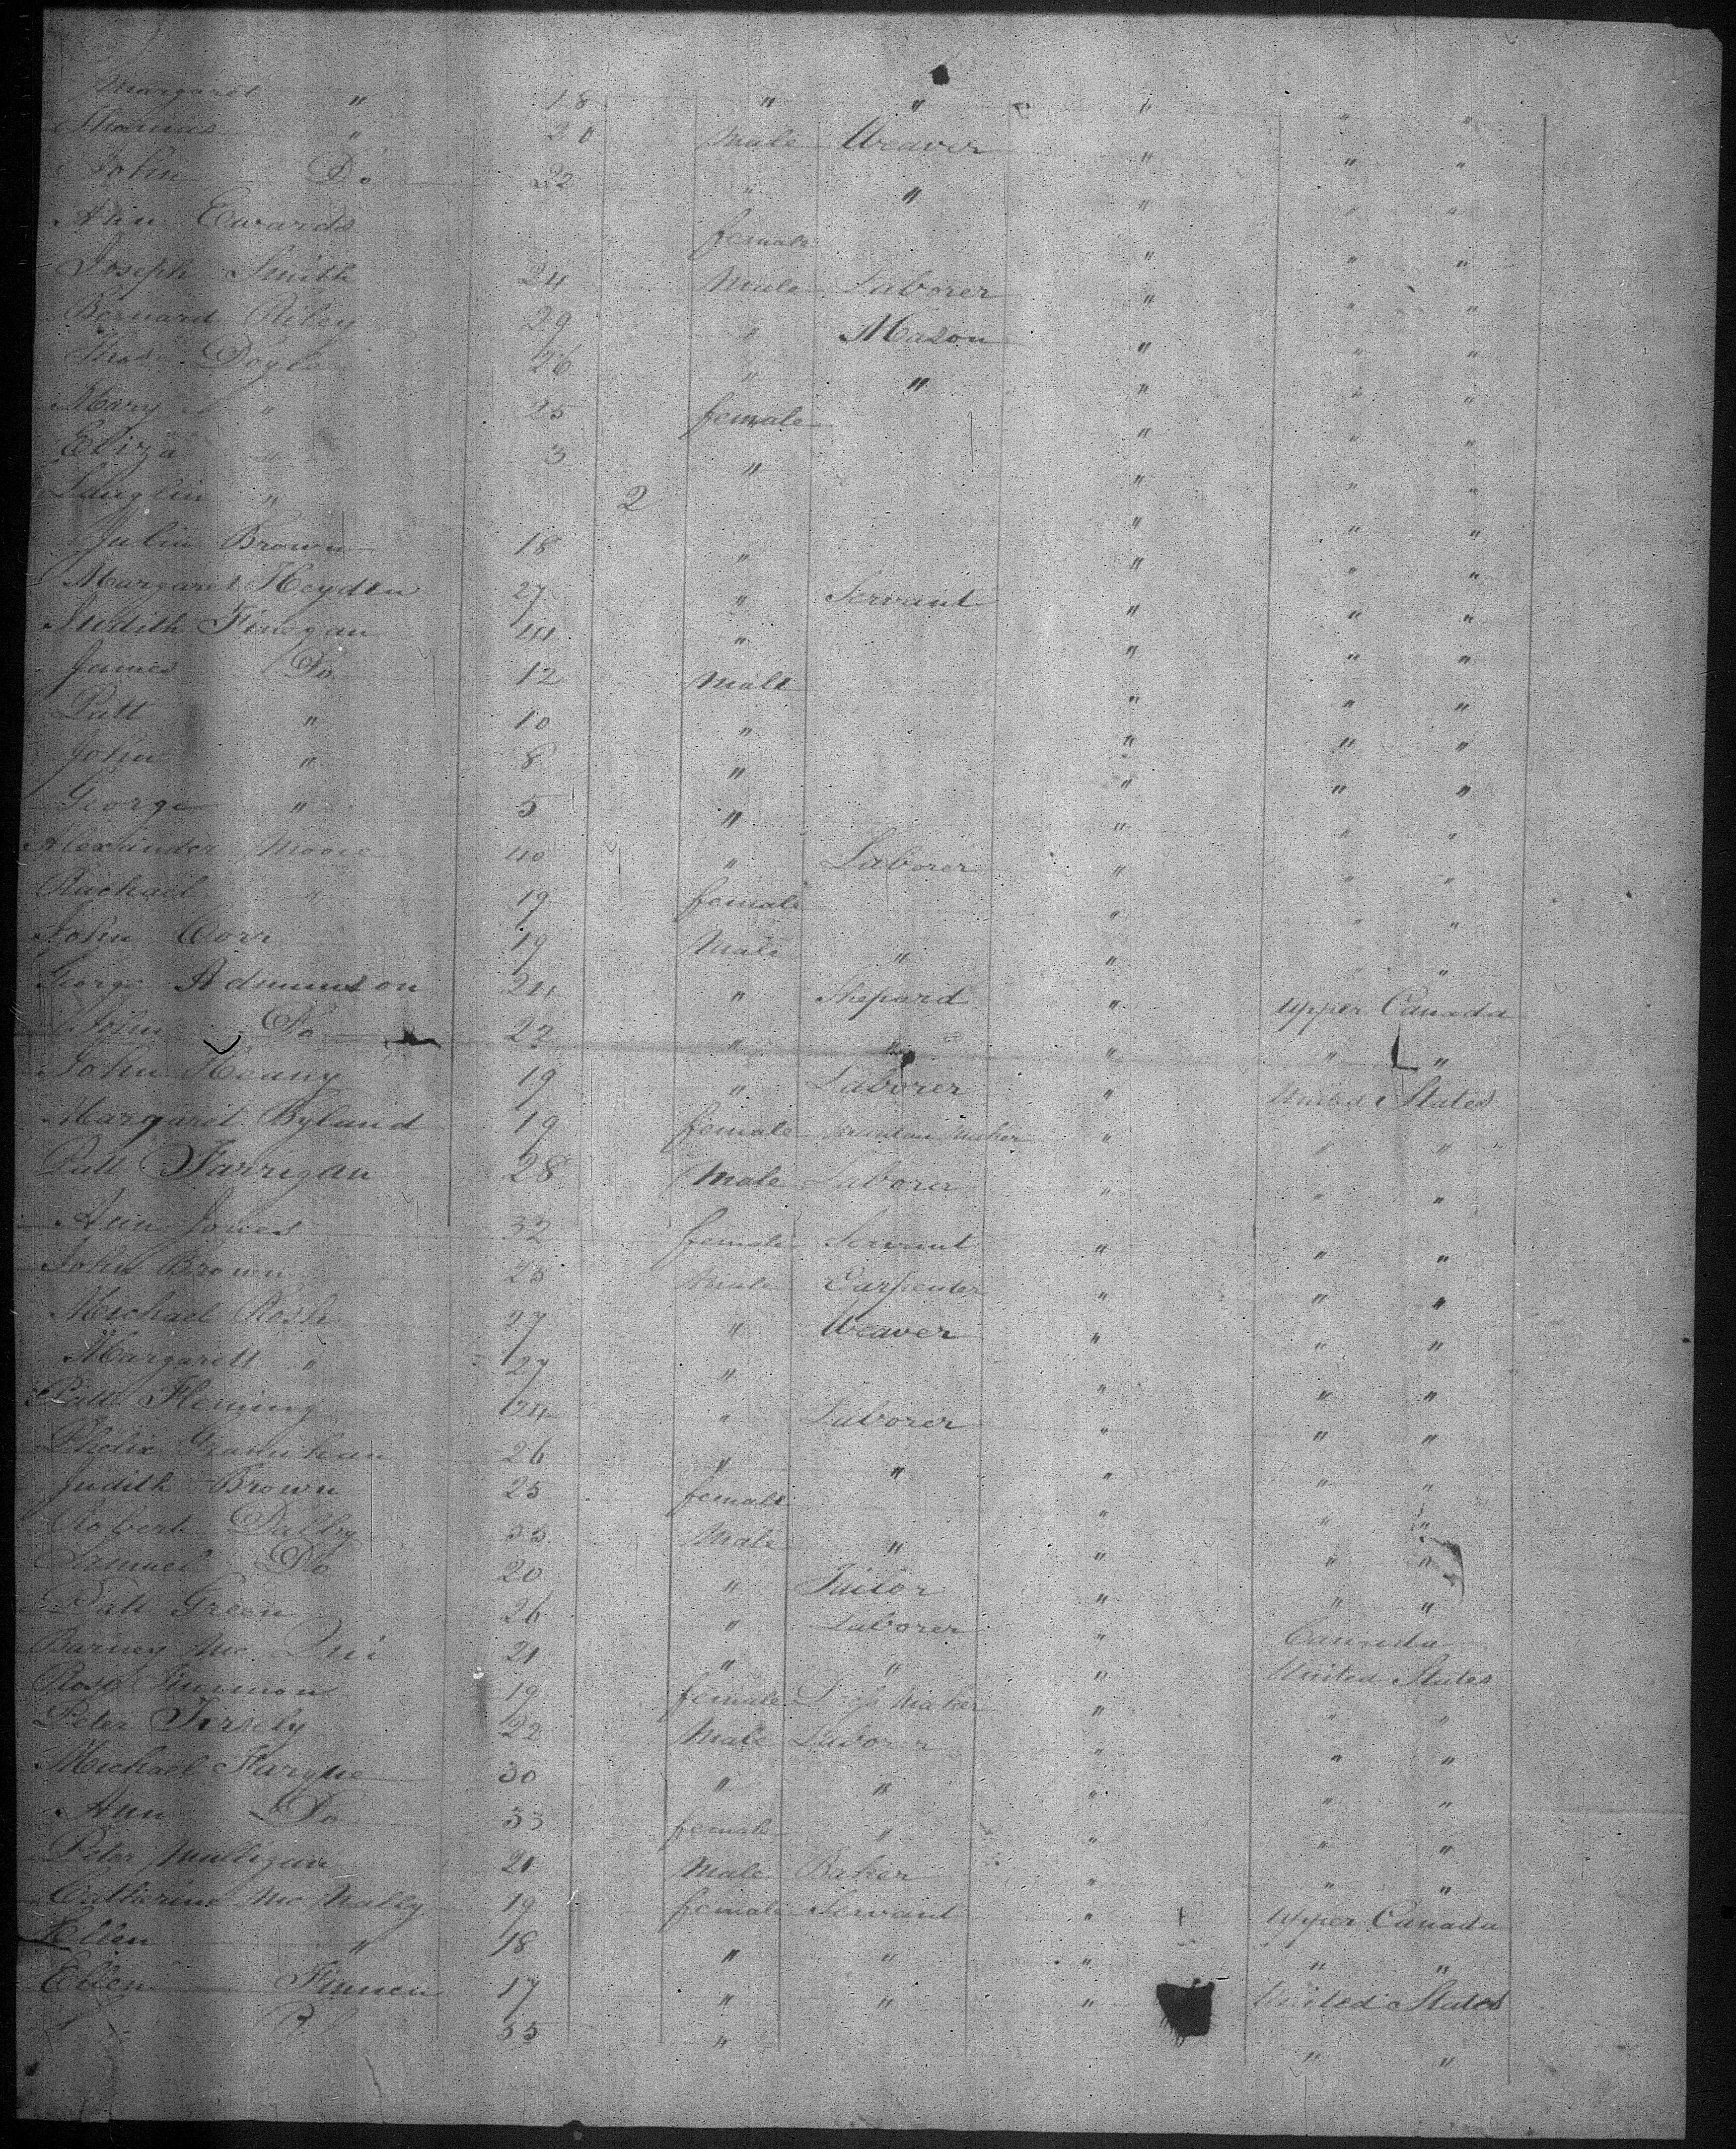 Margaret " 18 " " " " "
Thomas " 20 Male Weaver " " "
John Do 22 " " " " "
Ann Ewards female " " "
Joseph Smith 24 Male Laborer " " "
Bernard Riley 29 " Mason " " "
Thos Doyle 26 " " " " "
Mary " 25 female " " "
Eliza " 3 " " " "
" 2 " " "
Julia Brown 18 " " " "
Margaret Heyden 27 " Servant " " "
Judith Finegan 44 " " " "
James Do 12 Male " " "
Patt " 10 " " " "
John " 8 " " " "
George " 5 " " " "
Alexander Moore 40 " Laborer " " "
Rachael " 19 female " " "
John Corr 19 Male " " " "
George Admunson 24 " Shepard " Upper Canada
John Do 22 " " " " "
John Heany 19 " Laborer " United States
Margaret Byland 19 female Maker " " "
Patt Farrigan 28 Male Laborer " " "
Ann Jones 32 female Servant " " "
John Brown 25 Male Carpenter " " "
Michael Rosh 27 " Weaver " " "
Margarett " 27 " " " "
Patt Fleming 24 " Laborer " " "
Phelix 26 " " " " "
Judith Brown 25 female " " "
Robert Dalby 55 Male " " " "
Samuel Do 20 " Tailor " " "
Patt Green 26 " Laborer " Canada
Barney Mc 21 " " " United States
Rosa 19 female Maker " " "
Peter 22 Male Laborer " " "
Michael 30 " " " " "
Ann Do 33 female " " " "
Peter Mulligan 21 Male Baker " " "
Catherine Mc Nally 19 female Servant " Upper Canada
Ellen " 18 " " " " "
Ellen Finnen 17 " " " United States
55 " " "